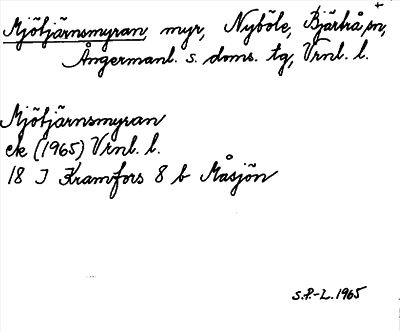 Mjötjärnsmyran, myr, Nyböle, Bjärtrå sn,
Ångermanl. s. doms. tg, Vrnl. l.
Mjötjärnsmyran
ek (1965) Vrnl. l.
18 J Kramfors 8 b Måsjön
S.P.-L. 1965